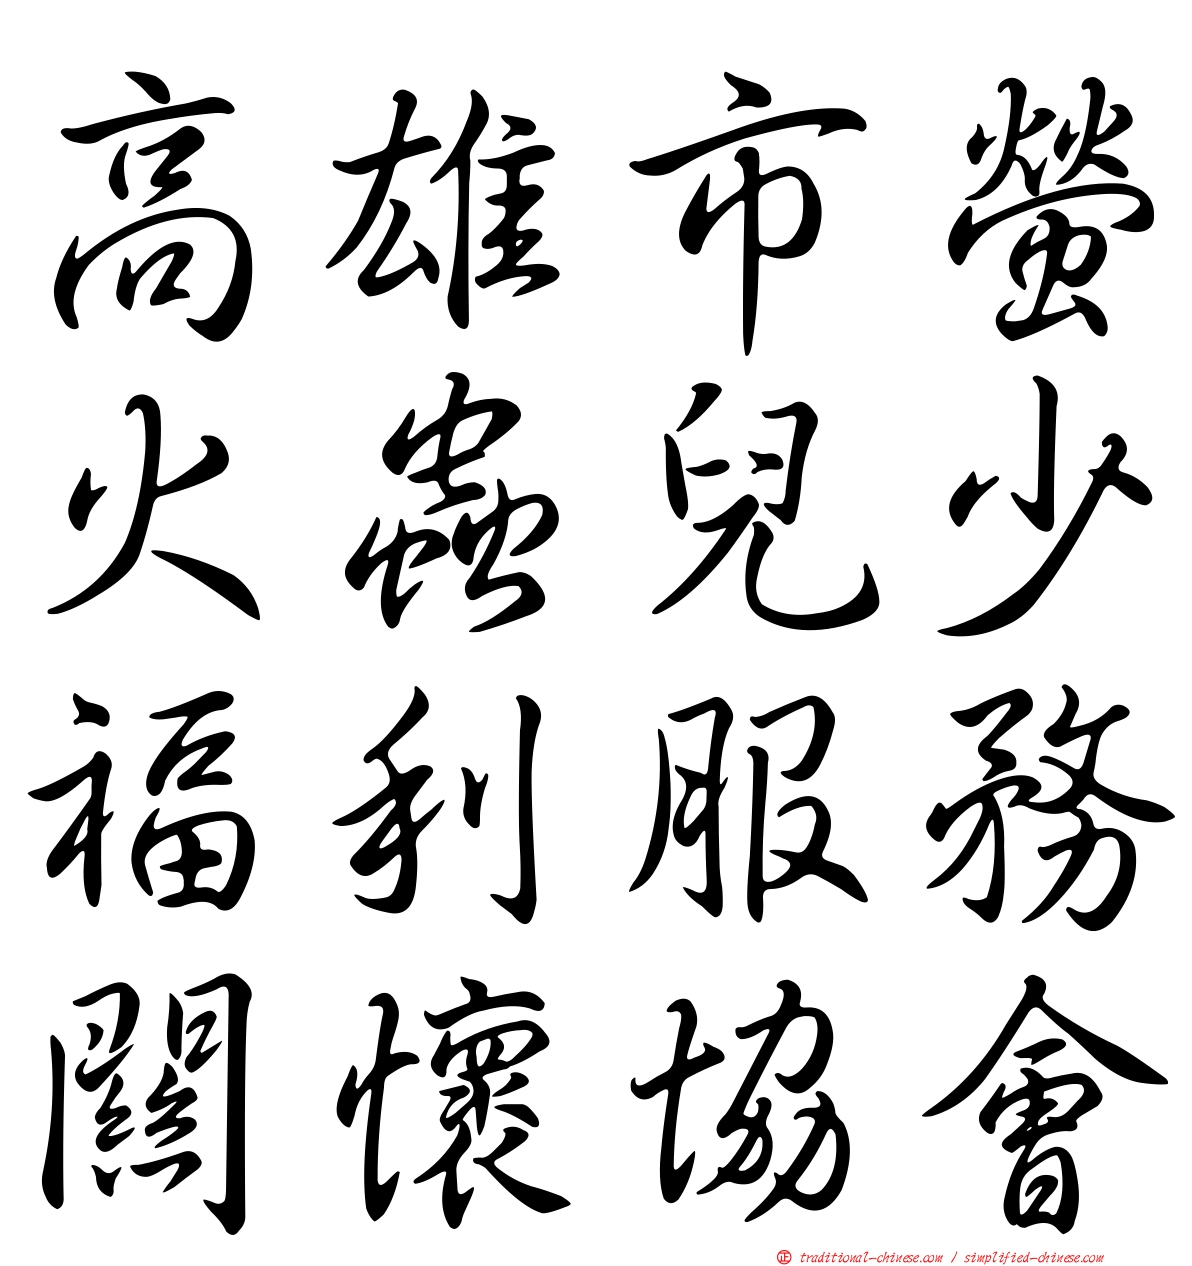 高雄市螢
火蟲兒少
福利服務
關懷協會
㊣ traditional-chinese.com / simplified-chinese.com